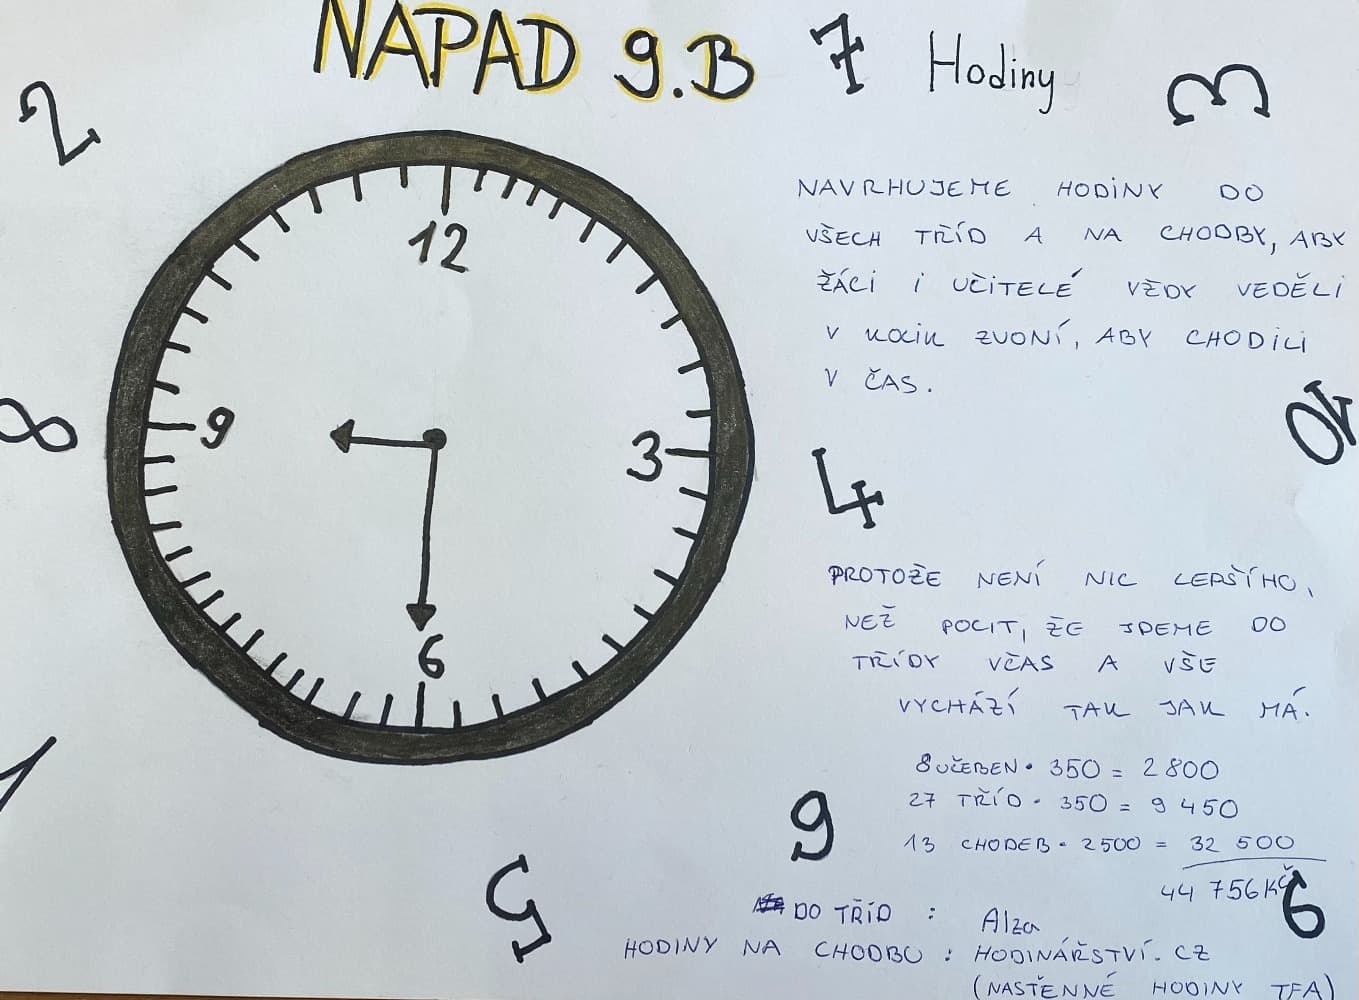 NÁPAD 9.B
Hodiny
7
3
2
NAVRHUJEME HODINY DO
VŠECH TŘÍD A NA CHODBY, ABY
ŽÁCI I UČITELÉ VŽDY VEDĚLI
V KOLIK ZVONÍ, ABY CHODILI
V ČAS.
12
9
3
6
8
10
4
PROTOŽE NENÍ NIC LEPŠÍHO,
NEŽ POCIT, ŽE JDEME DO
TŘÍDY VČAS A VŠE
VYCHÁZÍ TAK JAK MÁ.
1
8 UČEBEN · 350 = 2 800
27 TŘÍD · 350 = 9 450
13 CHODEB · 2500 = 32 500
44 756 KČ
9
5
6
DO TŘÍD : Alza
HODINY NA CHODBU : HODINÁŘSTVÍ.CZ
(NÁSTĚNNÉ HODINY TFA)